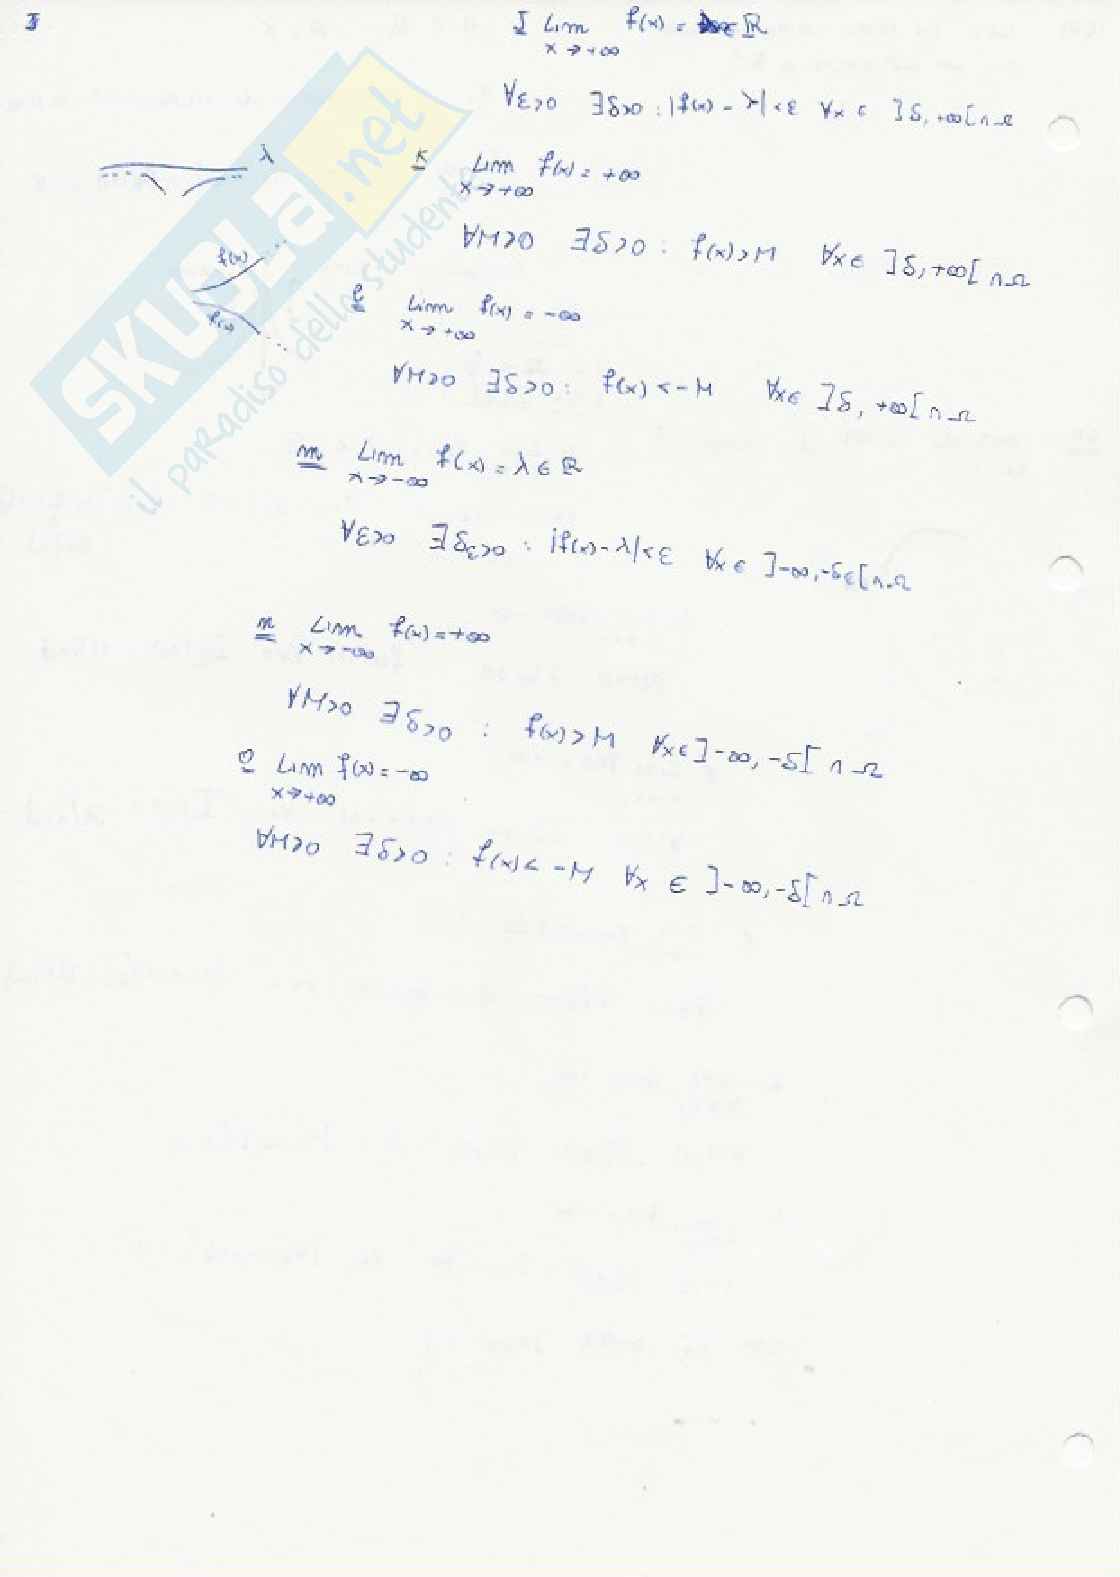 I Lim f(x) = λ ∈ ℝ
x → +∞
∀ε>0 ∃δ>0 : |f(x) - λ| < ε ∀x ∈ ]δ, +∞[ ∩ Ω
λ
K Lim f(x) = +∞
x → +∞
∀M>0 ∃δ>0 : f(x) > M ∀x ∈ ]δ, +∞[ ∩ Ω
f(x)
f(x)
l Lim f(x) = -∞
x → +∞
∀M>0 ∃δ>0 : f(x) < -M ∀x ∈ ]δ, +∞[ ∩ Ω
m Lim f(x) = λ ∈ ℝ
x → -∞
∀ε>0 ∃δε>0 : |f(x) - λ| < ε ∀x ∈ ]-∞, -δε[ ∩ Ω
n Lim f(x) = +∞
x → -∞
∀M>0 ∃δ>0 : f(x) > M ∀x ∈ ]-∞, -δ[ ∩ Ω
O Lim f(x) = -∞
x → +∞
∀M>0 ∃δ>0 : f(x) < -M ∀x ∈ ]-∞, -δ[ ∩ Ω
SKUOLA.net
il paradiso dello studente